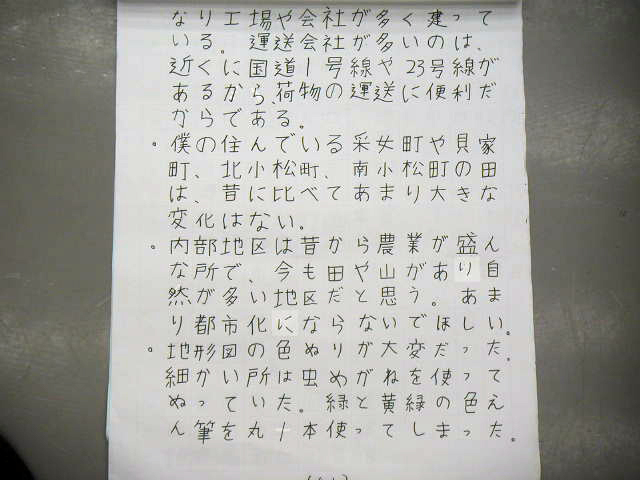 なり工場や会社が多く建って
いる。運送会社が多いのは、
近くに国道1号線や23号線が
あるから、荷物の運送に便利だ
からである。
。僕の住んでいる采女町や貝家
町、北小松町、南小松町の田
は、昔に比べてあまり大きな
変化はない。
。内部地区は昔から農業が盛ん
な所で、今も田や山があり自
然が多い地区だと思う。あま
り都市化にならないでほしい。
。地形図の色ぬりが大変だった。
細かい所は虫めがねを使って
ぬっていた。緑と黄緑の色え
ん筆を丸1本使ってしまった。